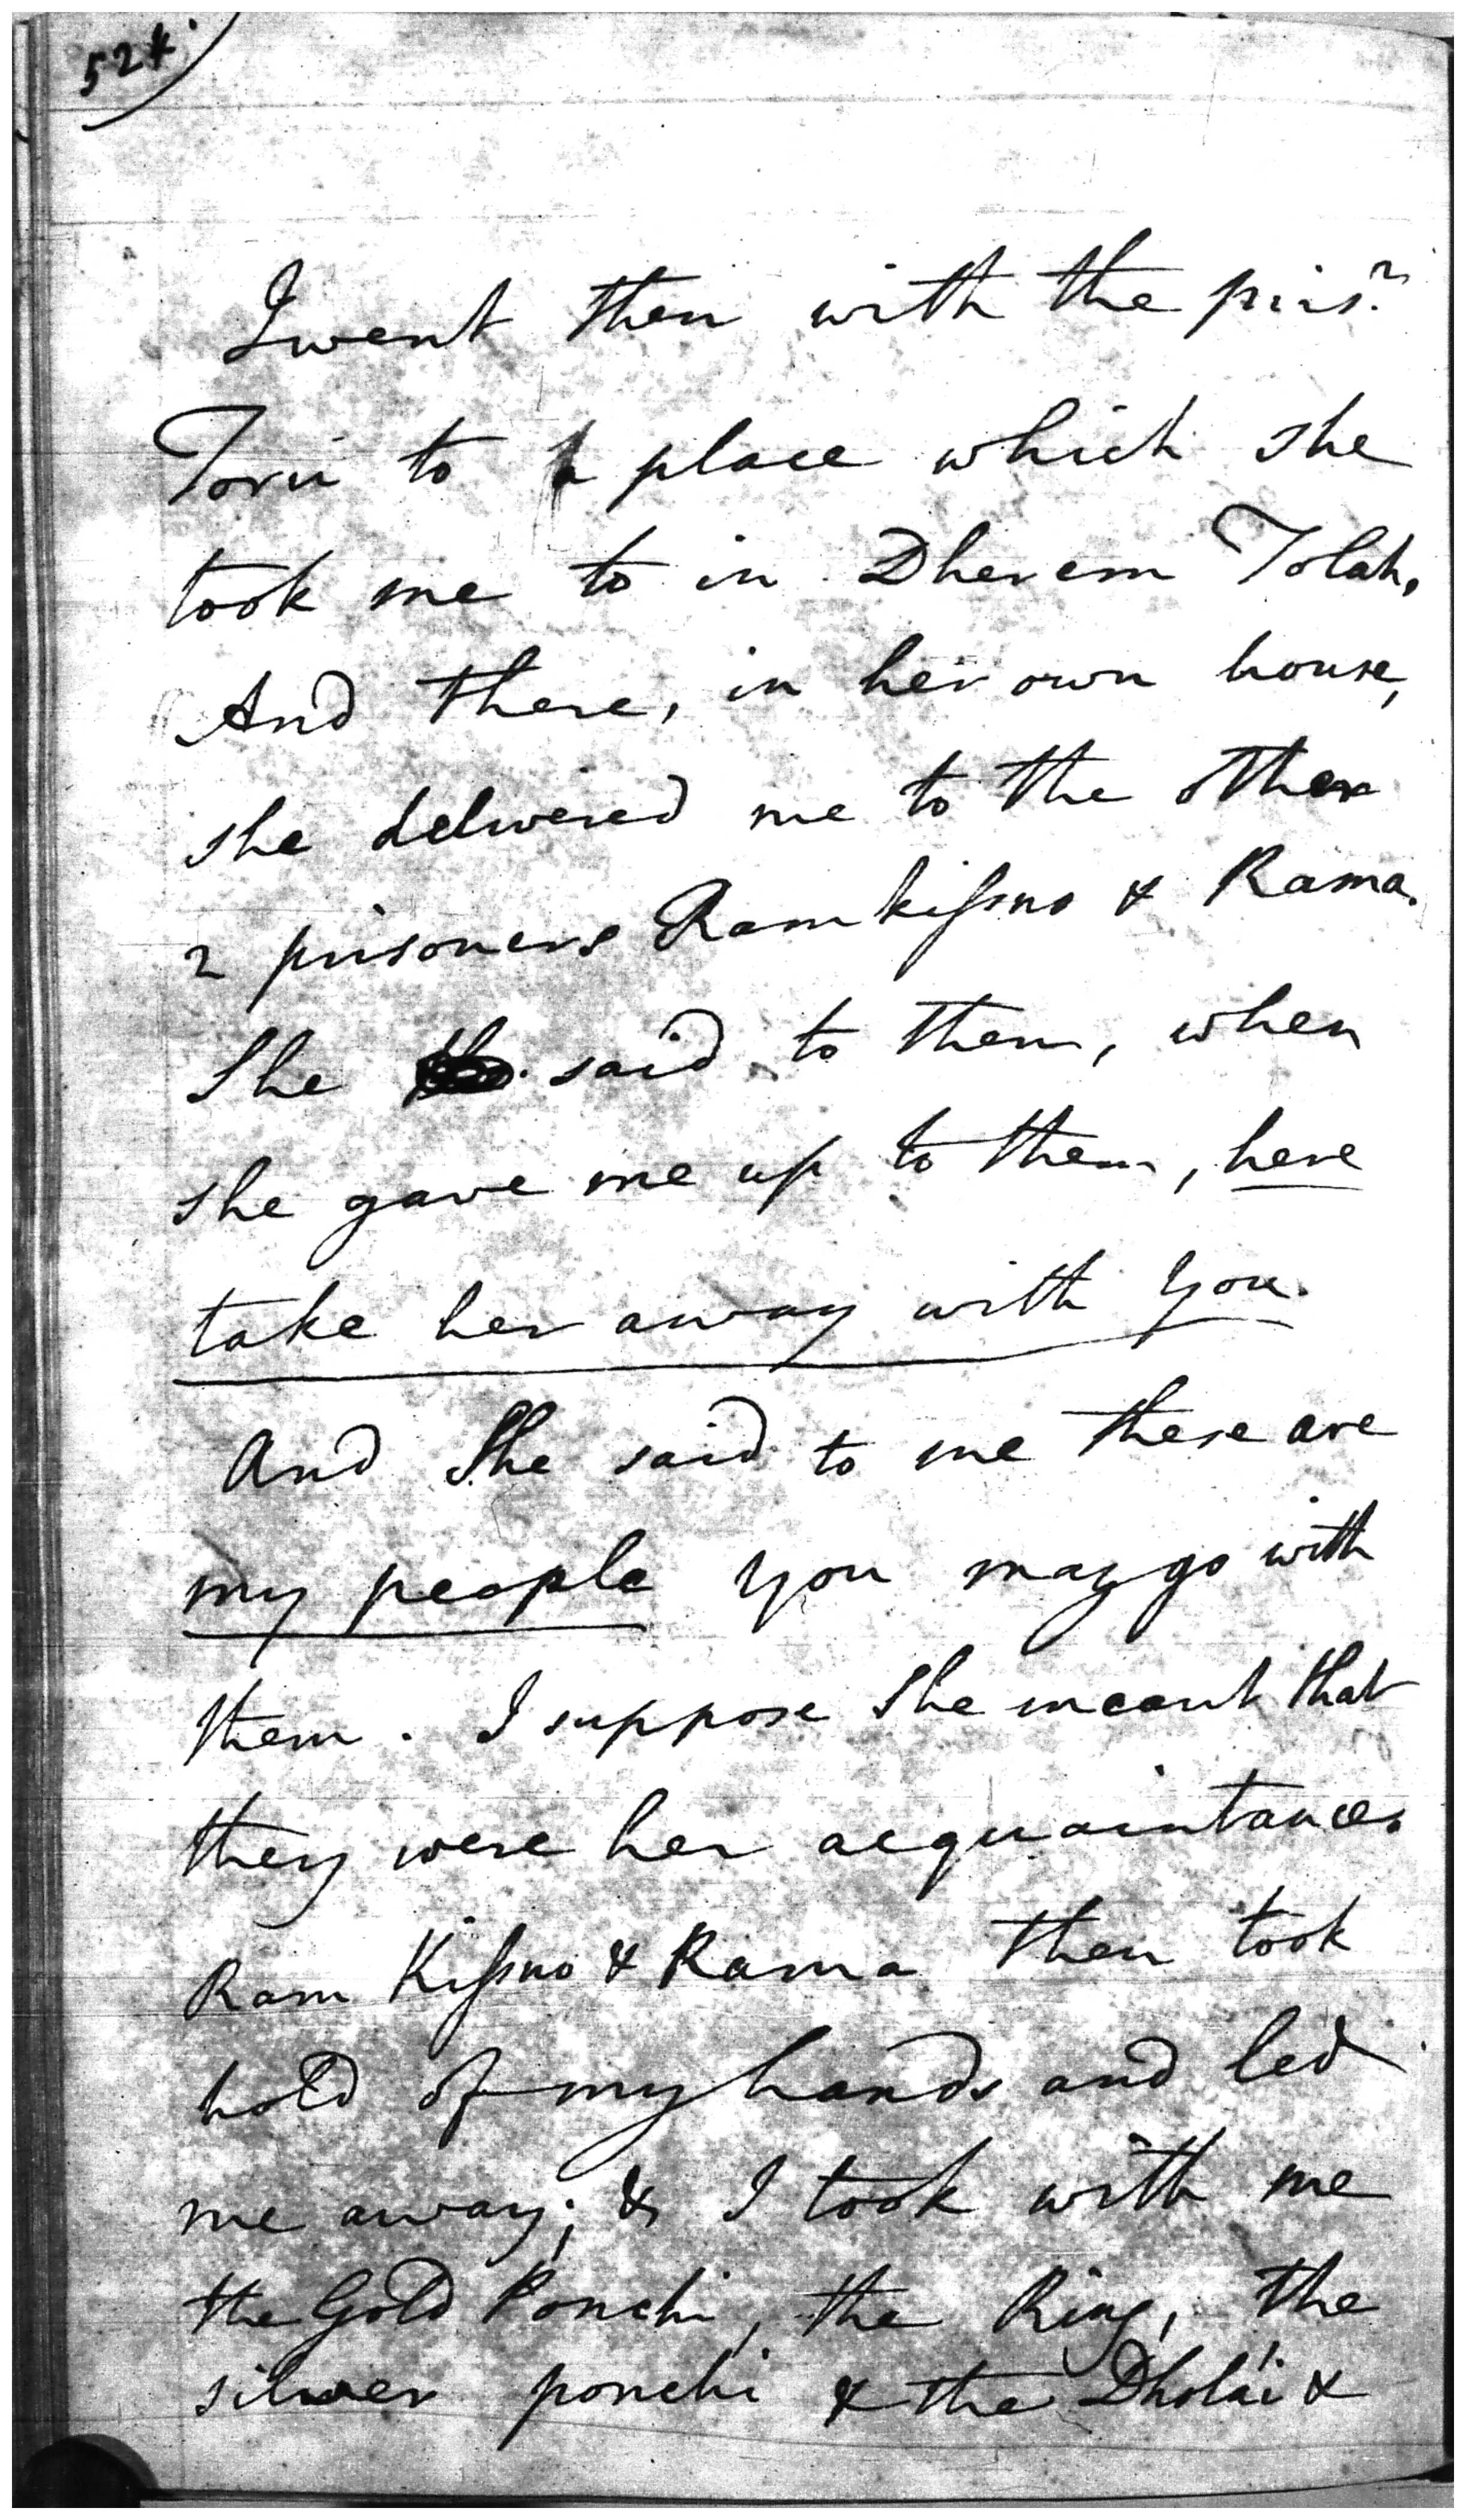 524
I went then with the pris.r
Torii to a place which she
took me to in Dherem Tolah,
And there, in her own house,
she delivered me to the other
2 prisoners Ramkissno & Rama.
She said to them, when
she gave me up to them, here
take her away with you.
And She said to me these are
my people you may go with
them. I suppose She meant that
they were her acquaintance.
Ram Kissno & Rama then took
hold of my hands and led
me away; & I took with me
the Gold Ponchi, the Ring, the
silver ponchi & the Dholái &